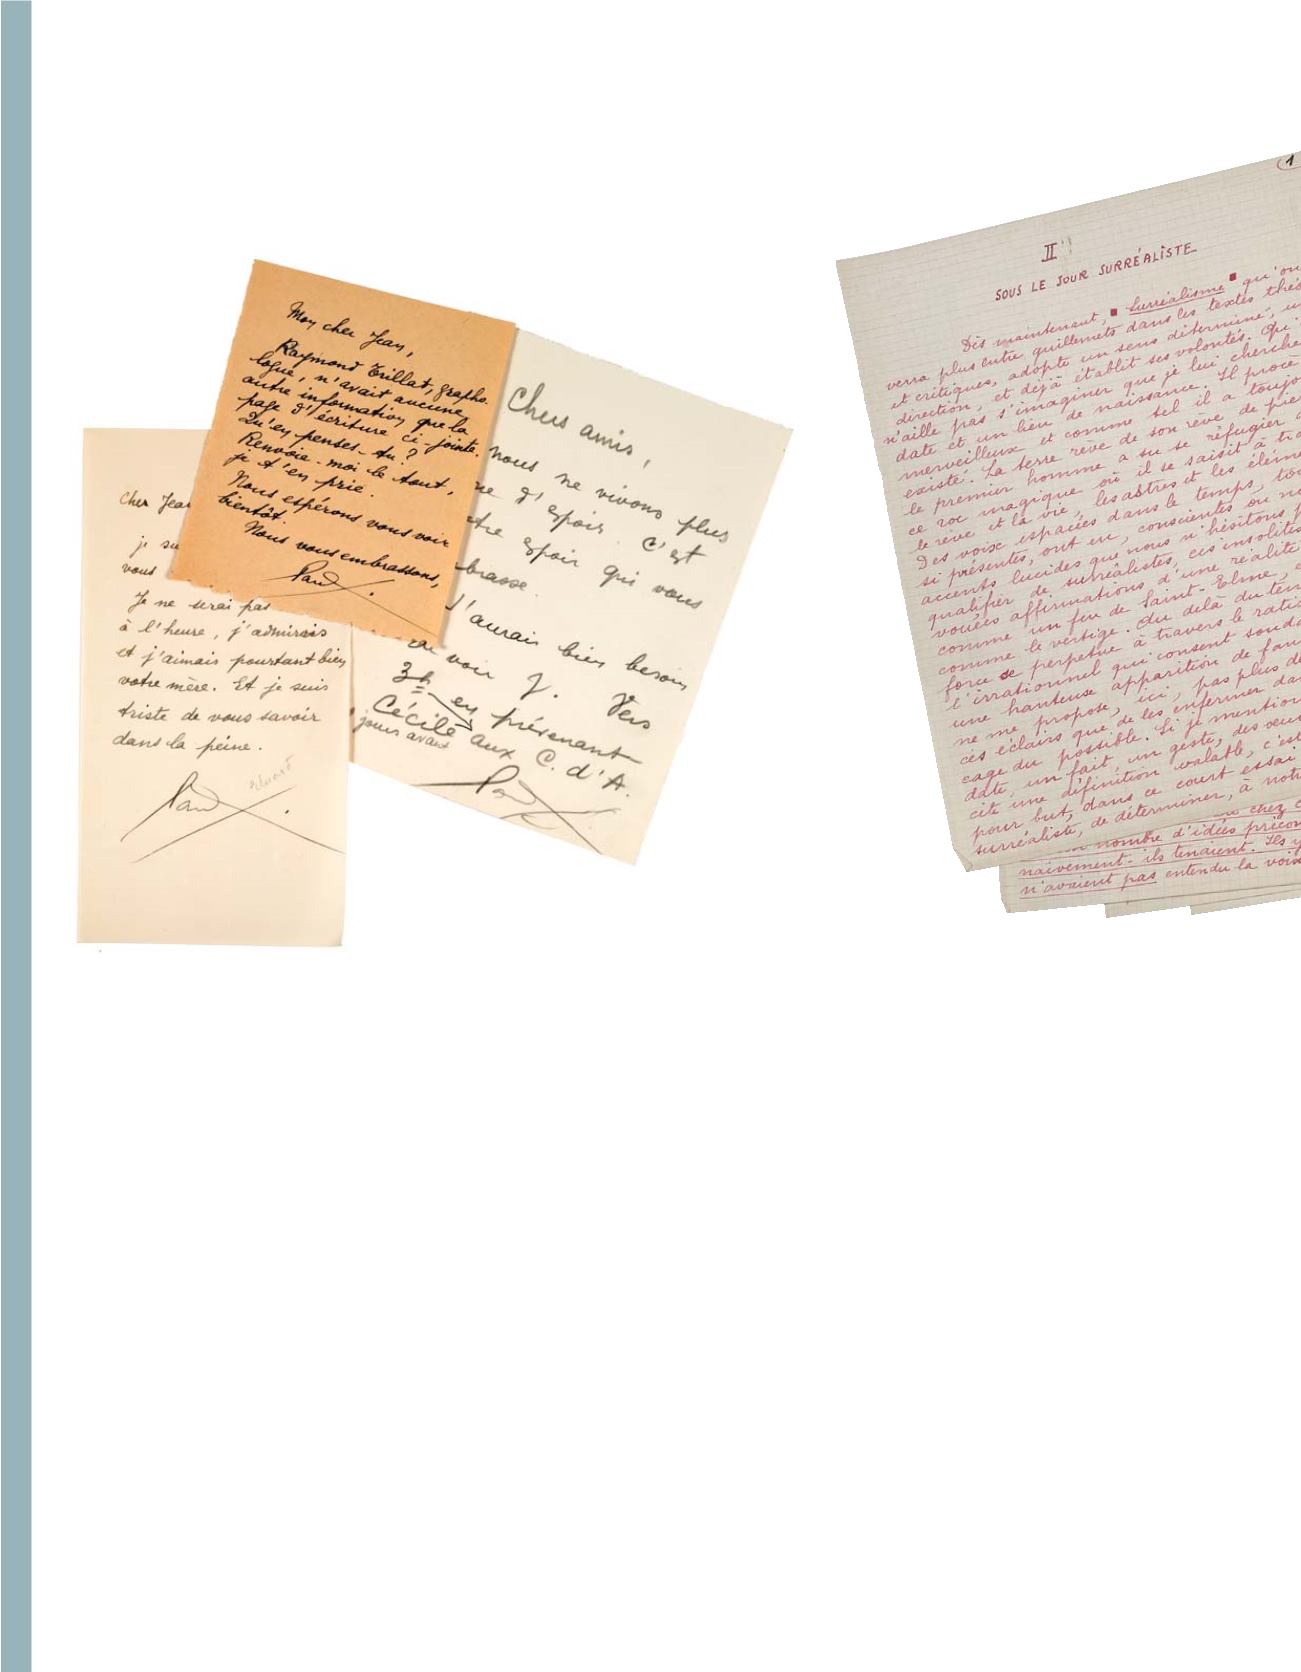 Mon cher Jean,
Raymond Trillat, grapho-
logue, n'avait aucune
autre information que la
page d'écriture ci-jointe.
Qu'en penses-tu?
Renvoie-moi le tout,
je t'en prie.
Nous espérons vous voir
bientôt.
Nous vous embrassons,
Paul
Cher Jean
je su
vous
Je ne serai pas
à l'heure, j'admirais
et j'aimais pourtant bien
votre mère. Et je suis
triste de vous savoir
dans la peine.
Eluard
Paul
Chers amis,
nous ne vivons plus
ue d'espoir. C'est
tre espoir qui vous
brasse.
J'aurais bien besoin
de voir J. Vers
3h en prévenant
Cécile aux C. d'A.
jours avant
Paul
1
II
SOUS LE JOUR SURRÉALISTE
Dès maintenant, ■ Surréalisme ■ qu'on
verra plus entre guillemets dans les textes théo
et critiques, adopte un sens déterminé, u
direction, et déjà établit ses volontés. Qu'
n'aille pas s'imaginer que je lui cherche
date et un lieu de naissance. Il procè
merveilleux et comme tel il a toujo
existé. La terre rêve de son rêve de pie
le premier homme a su se réfugier
ce roc magique où il se saisit à tra
le rêve et la vie, les astres et les éléme
Des voix espacées dans le temps, tou
si présentes, ont eu, conscientes ou no
accents lucides que nous n'hésitons p
qualifier de surréalistes, ces insolites
vouées affirmations d'une réalité
comme un feu de Saint-Elme, e
comme le vertige. Au delà du tem
force se perpétue à travers le ratio
l'irrationnel qui consent souda
une hanteuse apparition de fan
ne me propose, ici, pas plus de
ces éclairs que de les enfermer da
cage du possible. Si je mention
date, un fait, un geste, des oeu
cite une définition valable, c'est
pour but, dans ce court essai
surréaliste, de déterminer, à notr
chez c
nombre d'idées précon
naïvement - ils tenaient. Ils y
n'avaient pas entendu la voix